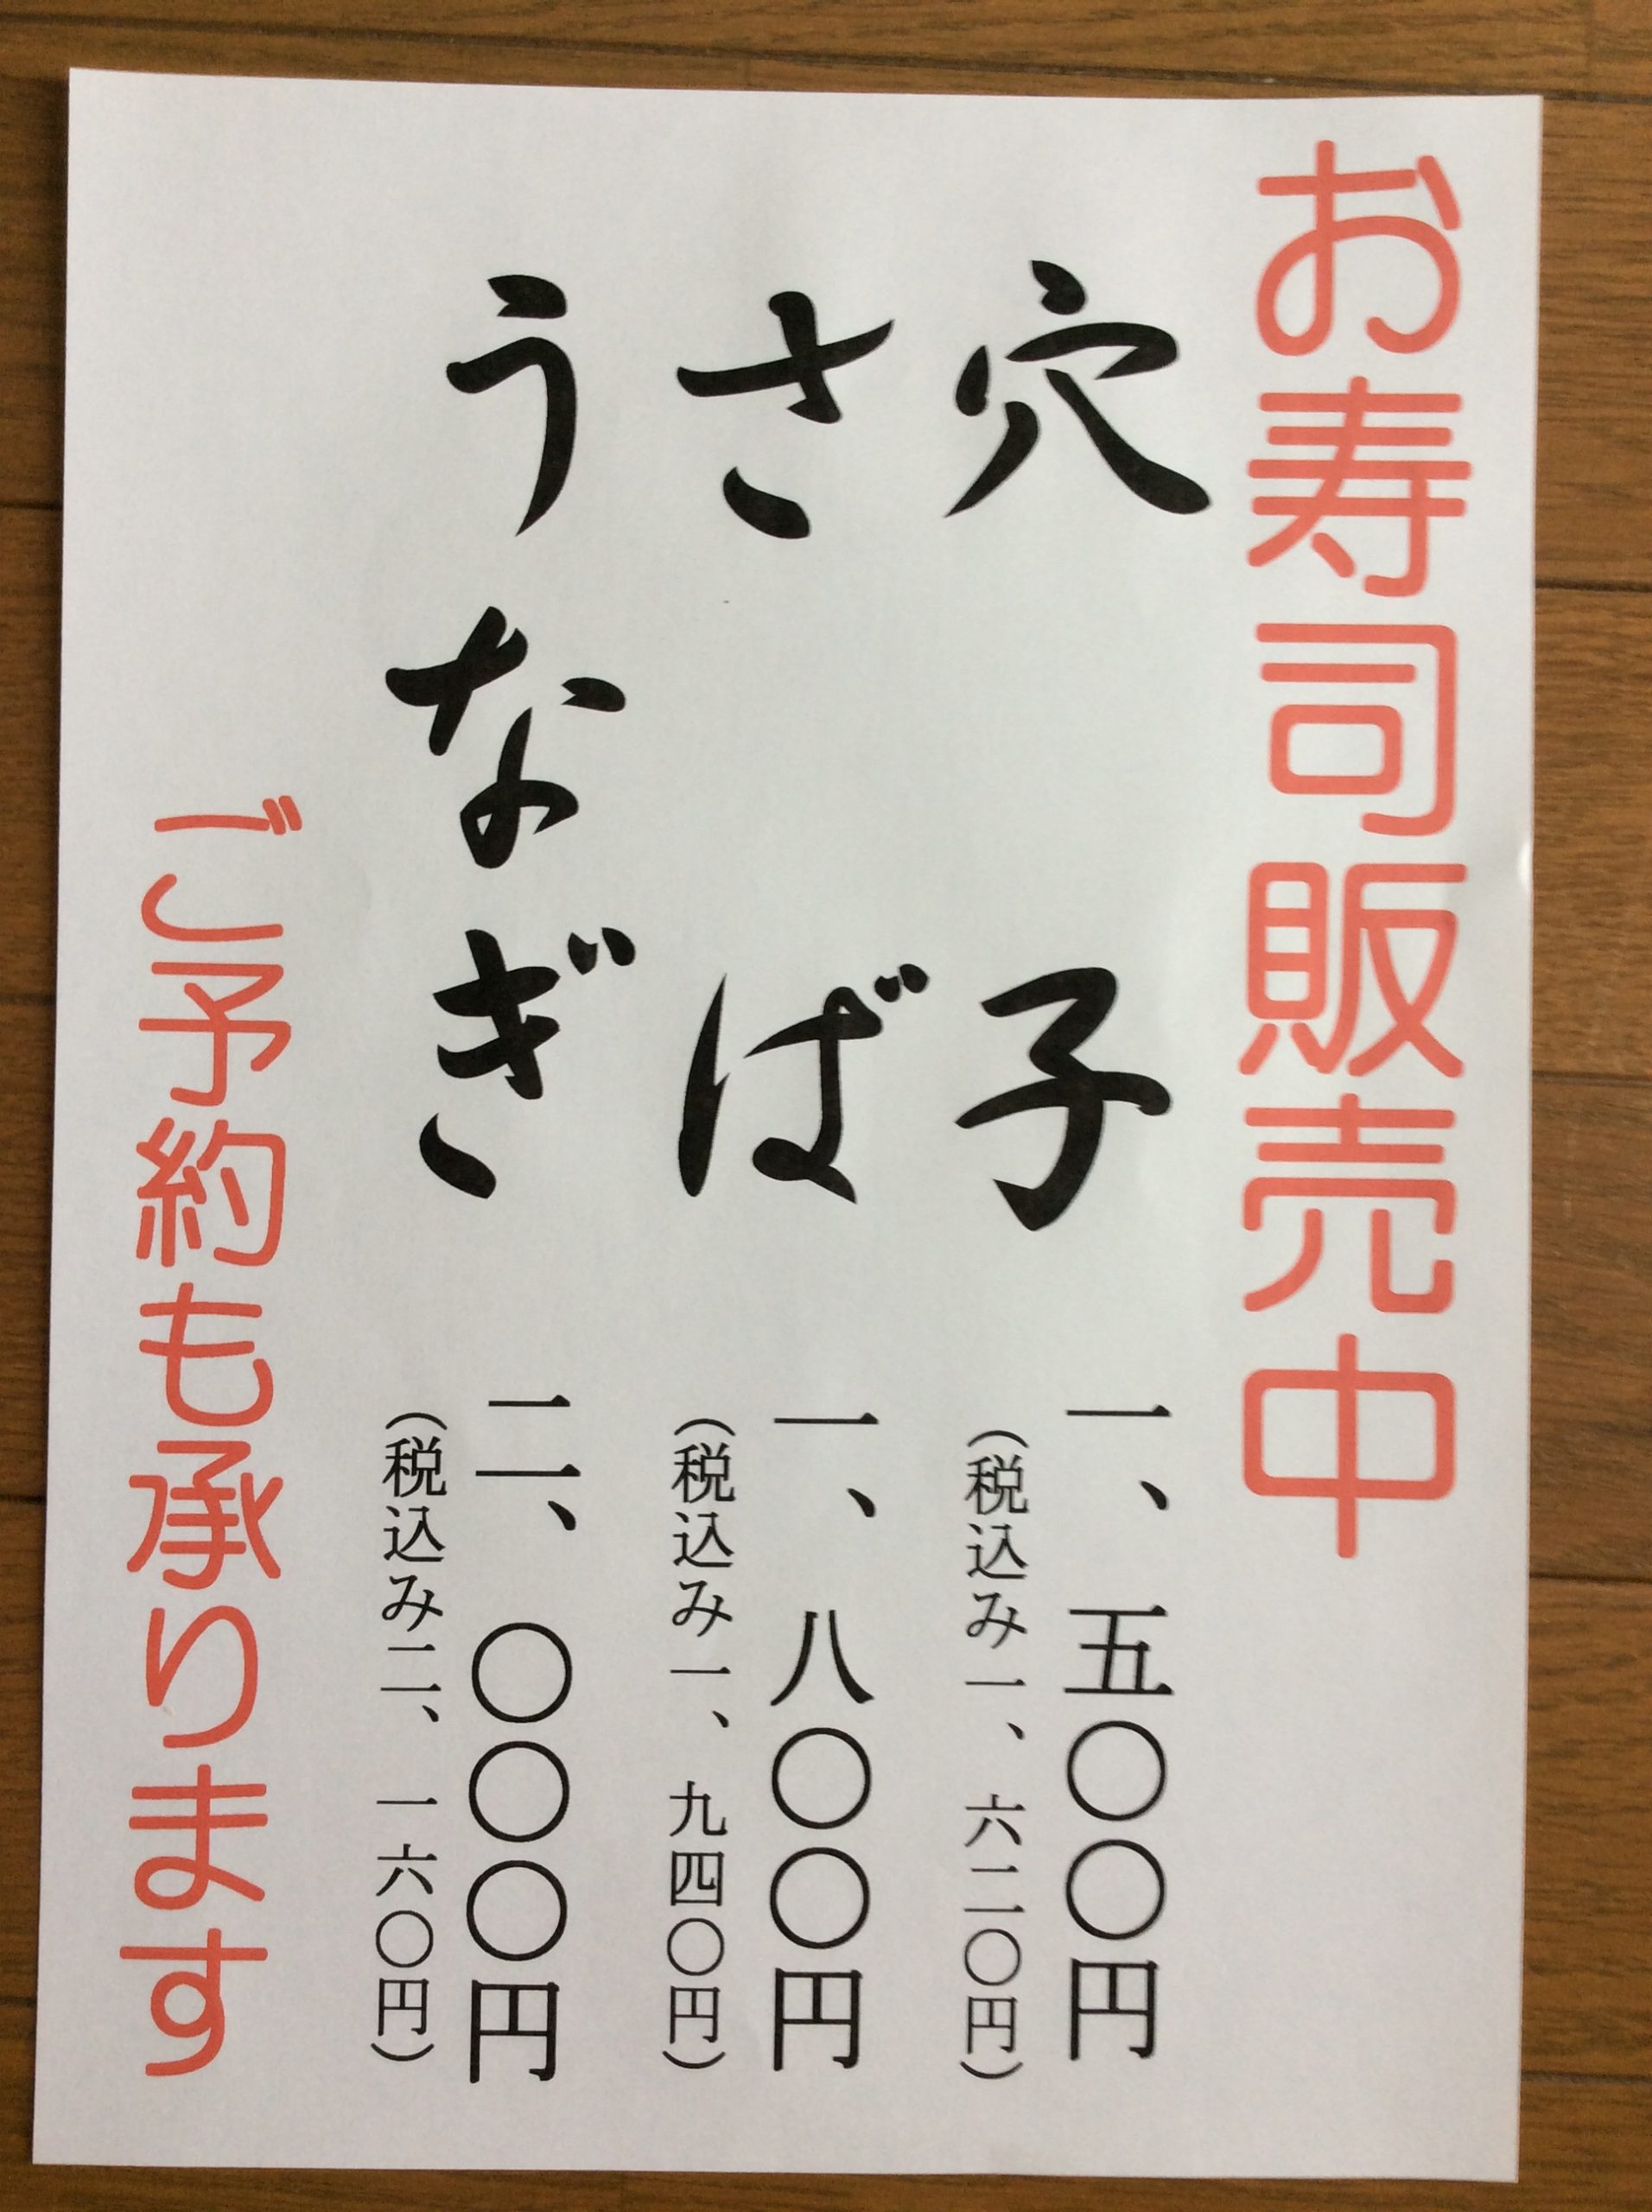 お寿司販売中
穴子 一、五〇〇円
(税込み一、六二〇円)
さば 一、八〇〇円
(税込み一、九四〇円)
うなぎ 二、〇〇〇円
(税込み二、一六〇円)
ご予約も承ります